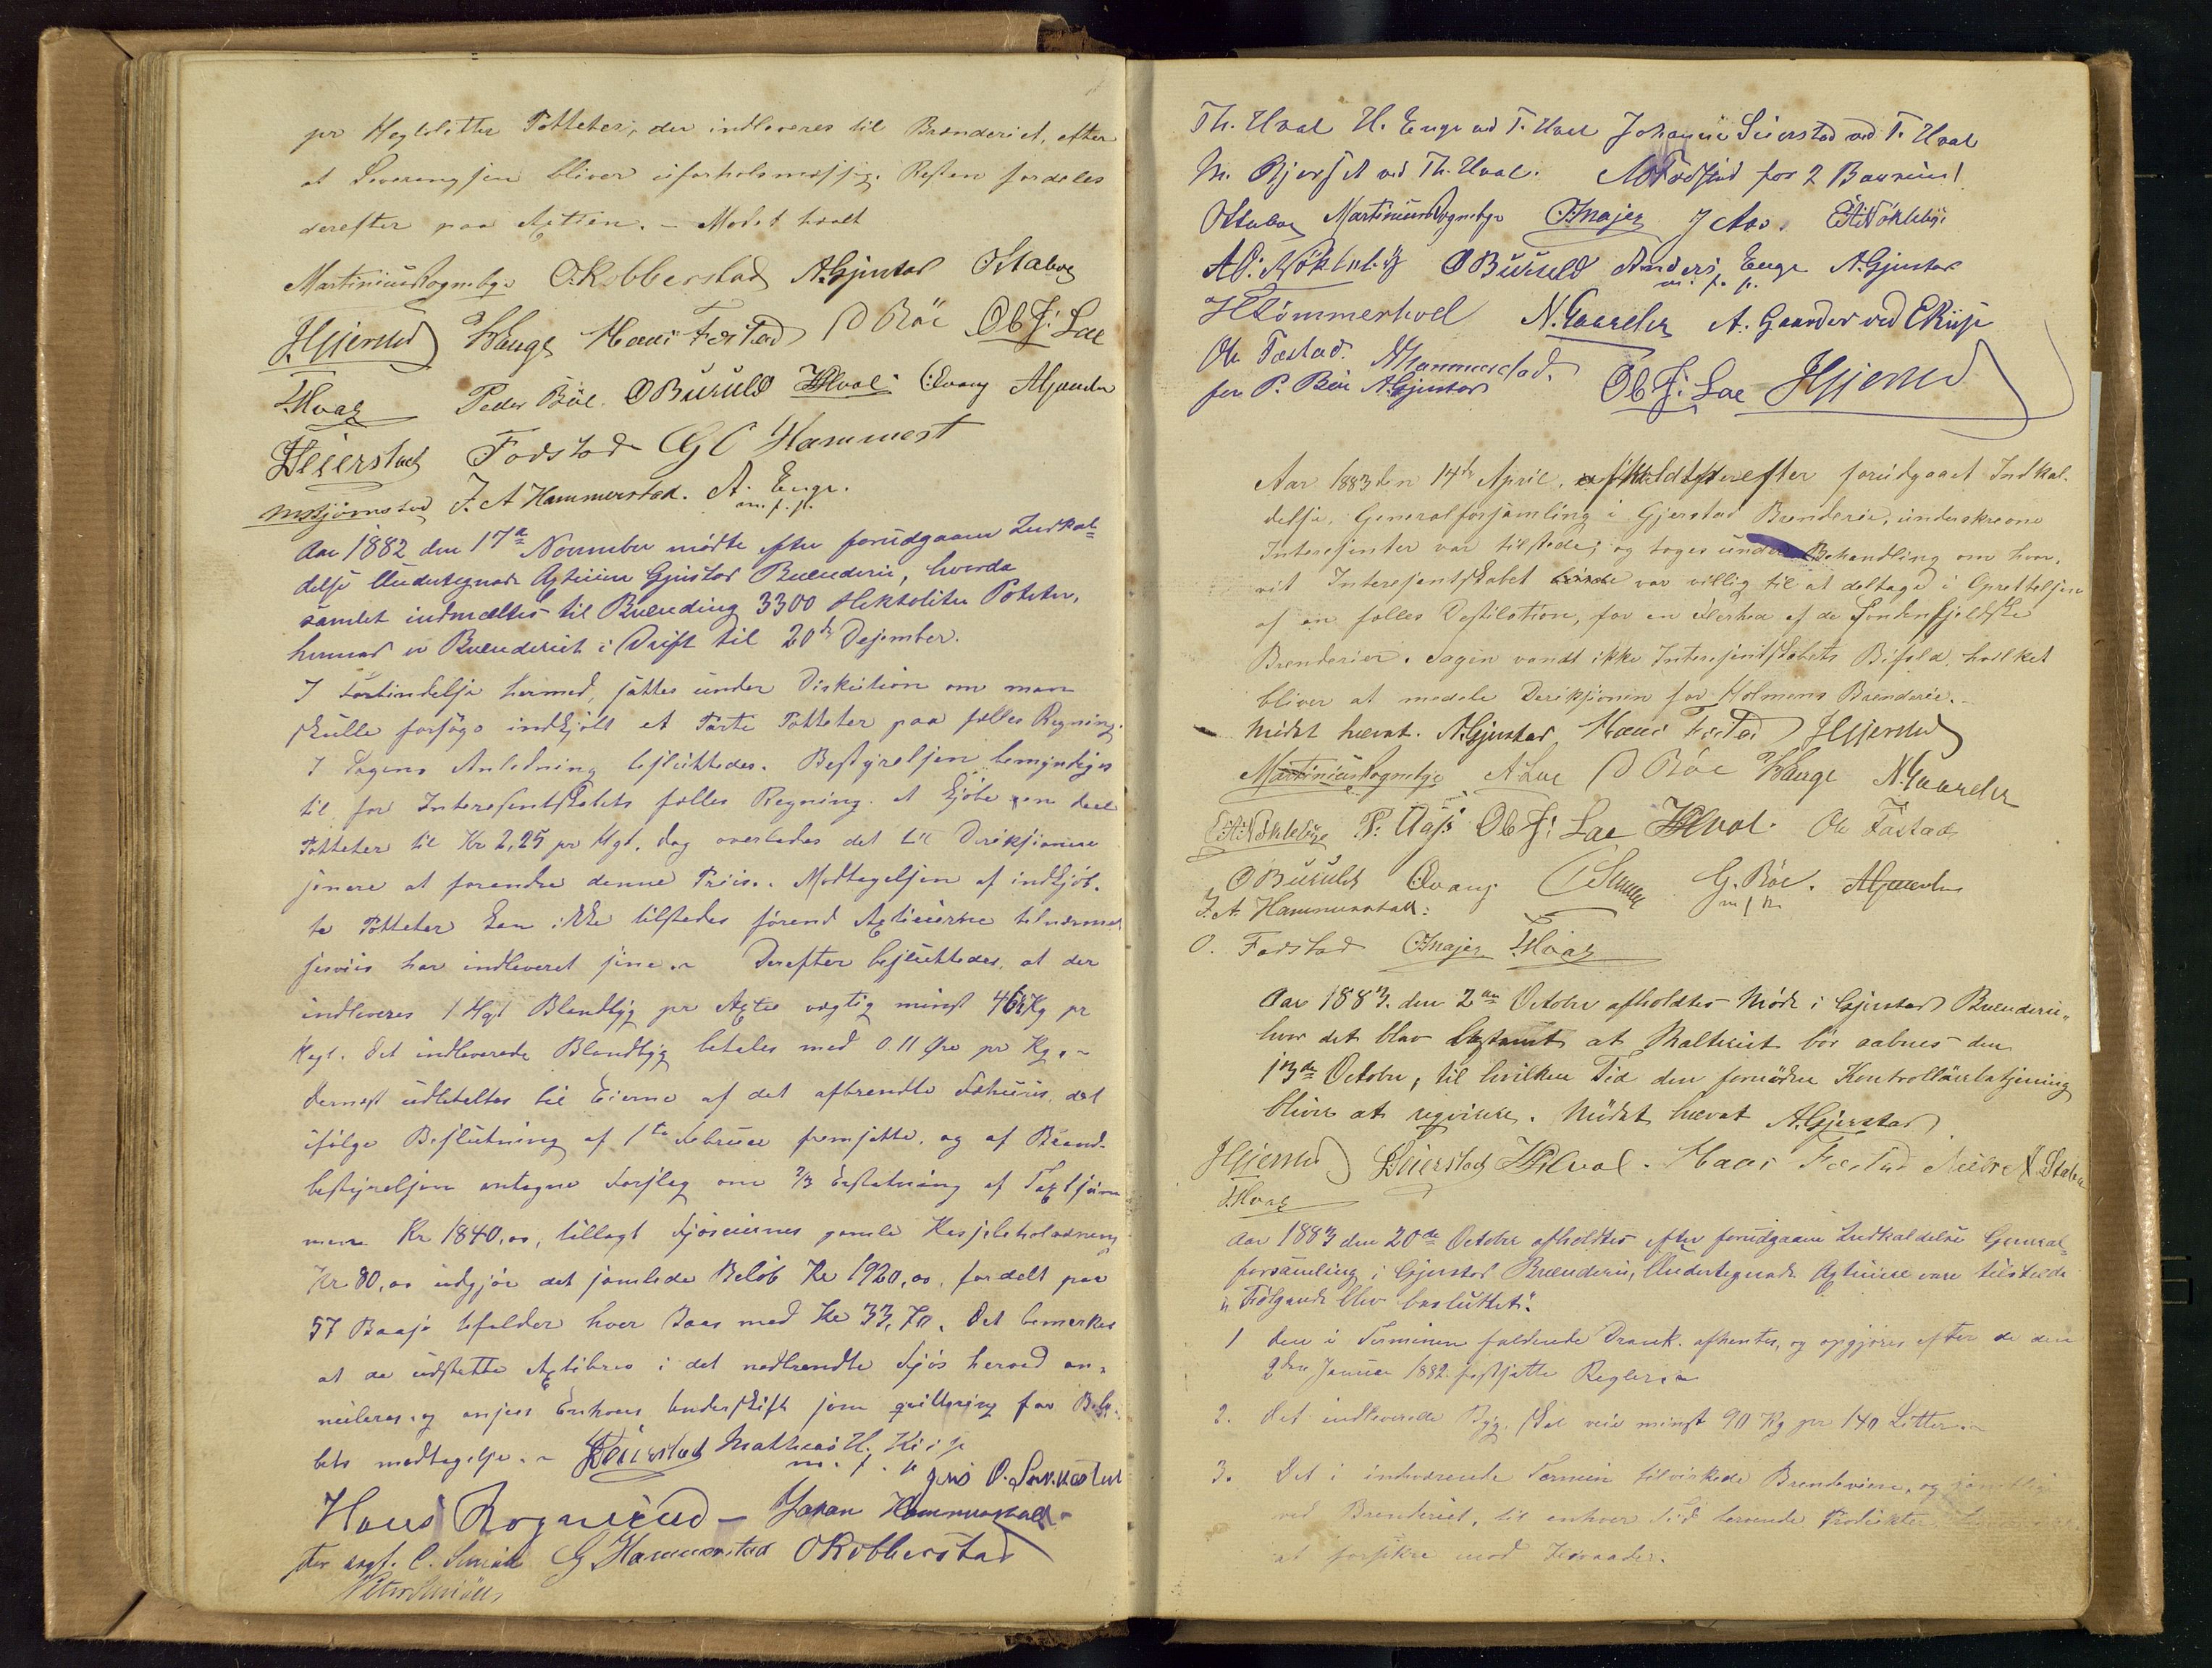 pr Hegtoliter Potteter, der indleveres til Brænderiet, efter
at Leverengsen bliver uforholsmæssig. Resten fordeles
derefter paa Agtien. - Mødet hævet
Martinius Rognebye O. Robberstad A. Gjerstad O Stabog
H Gjerstad Hauge Hans Festad P Böe Ole J: Lae
Hvaz Peder Böe. O Buruld H Hval. C. Evang A Gaarder
Seierstad Fodstad G C Hammerst
J. A Hammerstad. A. Enge.
m. f. p.
Aar 1882 den 17de November mödte efter forudgaaen Indkal-
delse Undertegnede Agtieiere Gjerstad Brænderie, hvorda
samlet indmældtes til Brænding 3300 Hektoliter Poteter,
hermed er Brænderiet i Drift til 20de Desember.
I Forbindelse hermed, sattes under Diskution om man
skulle forsöge indkjöbt et Parti Potteter paa fælles Regning.
I Sagens Anledning besluttedes. Bestyrelsen bemyndiges
til for Interesentskabets fælles Regning. at kjöbe en deel
Potteter til Kr 2,25 pr Hgt. dog overlades det til Direksionen
senere at forandre denne Priis. Modtagelsen af indkjöb-
te Potteter kan ikke tilstedes förend Agtieierne tilnærmel
sesviis har indleveret sine. - Derefter besluttedes, at der
indleveres 1 Hgt Blandbyg pr Agtie vægtig minst 46 Kg pr
Hegt. Det indleverede Blandbyg betales med 0.11 Øre pr Kg. -
Dernest udbetaltes til Eierne af det afbrendte Fæhuus, det
ifølge Beslutning af 1te Februar fremsatte, og af Brand-
bestyrelsen antagne Forslag om 2/3 Erstatning af Taxtsum
men Kr 1840,00, tillagt Fjöseiernes gamle Kassebeholdning
Kr 80,00 udgjör det samlede Belöb Kr 1920,00, fordelt paa
57 Baase tefalder hver Baas med Kr 33,70. Det bemerkes
at de udstette Agtibrev i det nedbrendte Fjös herved an-
nuleres, og ansees Enhvers Underskift som quittering for Belø-
bets modtagelse. - Seierstad Mathias H. Kiise
m. f. p
Hans Rognerud - Johan Hammerstad -
C. Smidt G Hammerstad O Robberstad
Th. Hval H. Enge ved T. Hval Johanne Seierstad ved T. Hval
M. Bjerset ved Th. Hval. A Fodstad for 2 Baaserum
O Stabog Martinius Rognebye C. Majer J Aas. E. H. Nökleby
A. P. Nökleby O Buruld Anders Enge A. Gjerstad
m. f. p.
H Tömmerhol N. Gaarder A. Gaarder ved E Kiise
Ole Fæstad. A Hammerstad.
for P. Böe A Gjerstad Ole J: Lae H Gjerstad
Aar 1883 den 14de April, afholdtes efter forudgaaet Indkal-
delse, Generalforsamling i Gjerstad Brenderie, underskrevne
Interesenter var tilstede; og toges under Behandling om hvor-
vit Interesentskabet var villig til at deltage i Oprettelsen
af en fælles Destilation, for en Flerhed af de Söndenfjeldske
Brenderier. Sagen vandt ikke Interesentskabets Bifald, hvilket
bliver at medele Dereksjonen for Holmens Brenderie. -
Mödet hævet. A. Gjerstad Hans Festad H Gjerstad
Martinius Rognebye A Lae P Böe Hauge N. Gaarder
E. H. Nökleby P. Aas Ole J: Lae H Hval. Ole Fæstad
O Buruld C. Evang. G. Böe. A Gaarder
J. A. Hammerstad: m f P.
O. Fodstad C. Majer Hvaz
Aar 1883. den 2den October afholdtes Möde i Gjerstad Brænderie,
hvor det blev bestemt at Malteriet bör aabnes den
13de October, til hvilken Tid den fornödne Kontrollörbetjening
bliver at reqvirere. Mödet hævet A. Gjerstad
H Gjerstad Seierstad H Hval. Hans Festad
Hvaz
Aar 1883 den 20de October afholdtes efter forudgaaen Indkaldelse General-
forsamling i Gjerstad Brænderie, Undertegnede Agtieiere vare tilstede
og Fölgende blev besluttet:
1 Den i Terminen faldende Drank. afhentes, og opgjöres efter de den
2den Januar 1882. fastsatte Regler. -
2. Det indleverede Byg. skal veie minst 90 Kg pr 140 Litter. -
3. Det i indeværende Termin tilvirkede Brendeviin, og samtlige
ved Brenderiet, til enhver Tid beroende Produkter
at forsikre mod Ildsvaade.